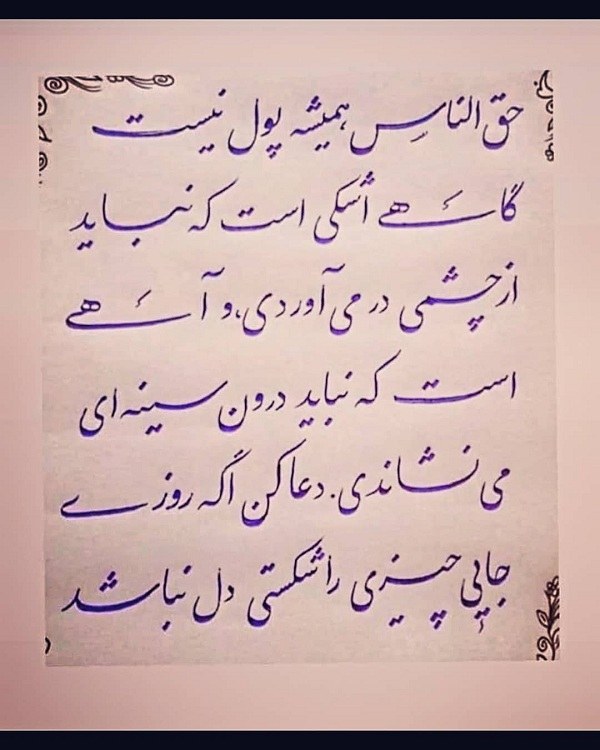 حق الناس همیشه پول نیست
گاهے اشکی است که نباید
از چشمی در می آوردی، و آهے
است که نباید درون سینه ای
می نشاندی. دعا کن اگه روزے
جایی چیزی را شکستی دل نباشد